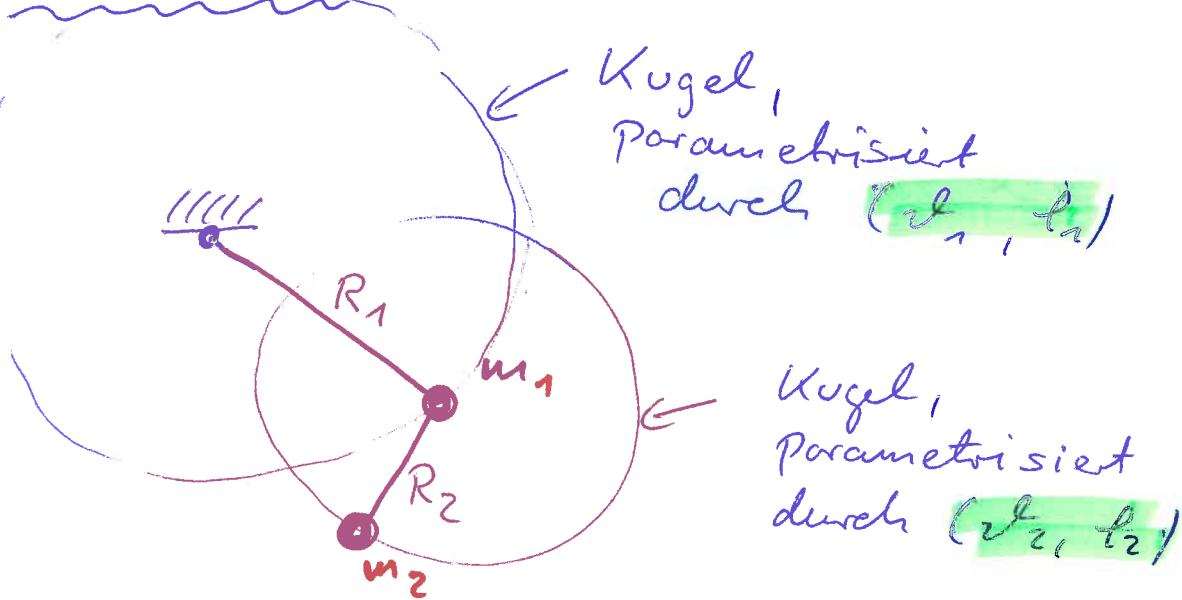 Kugel,
parametrisiert
durch (ϑ₁, φ₁)
R₁
m₁
Kugel,
parametrisiert
durch (ϑ₂, φ₂)
R₂
m₂